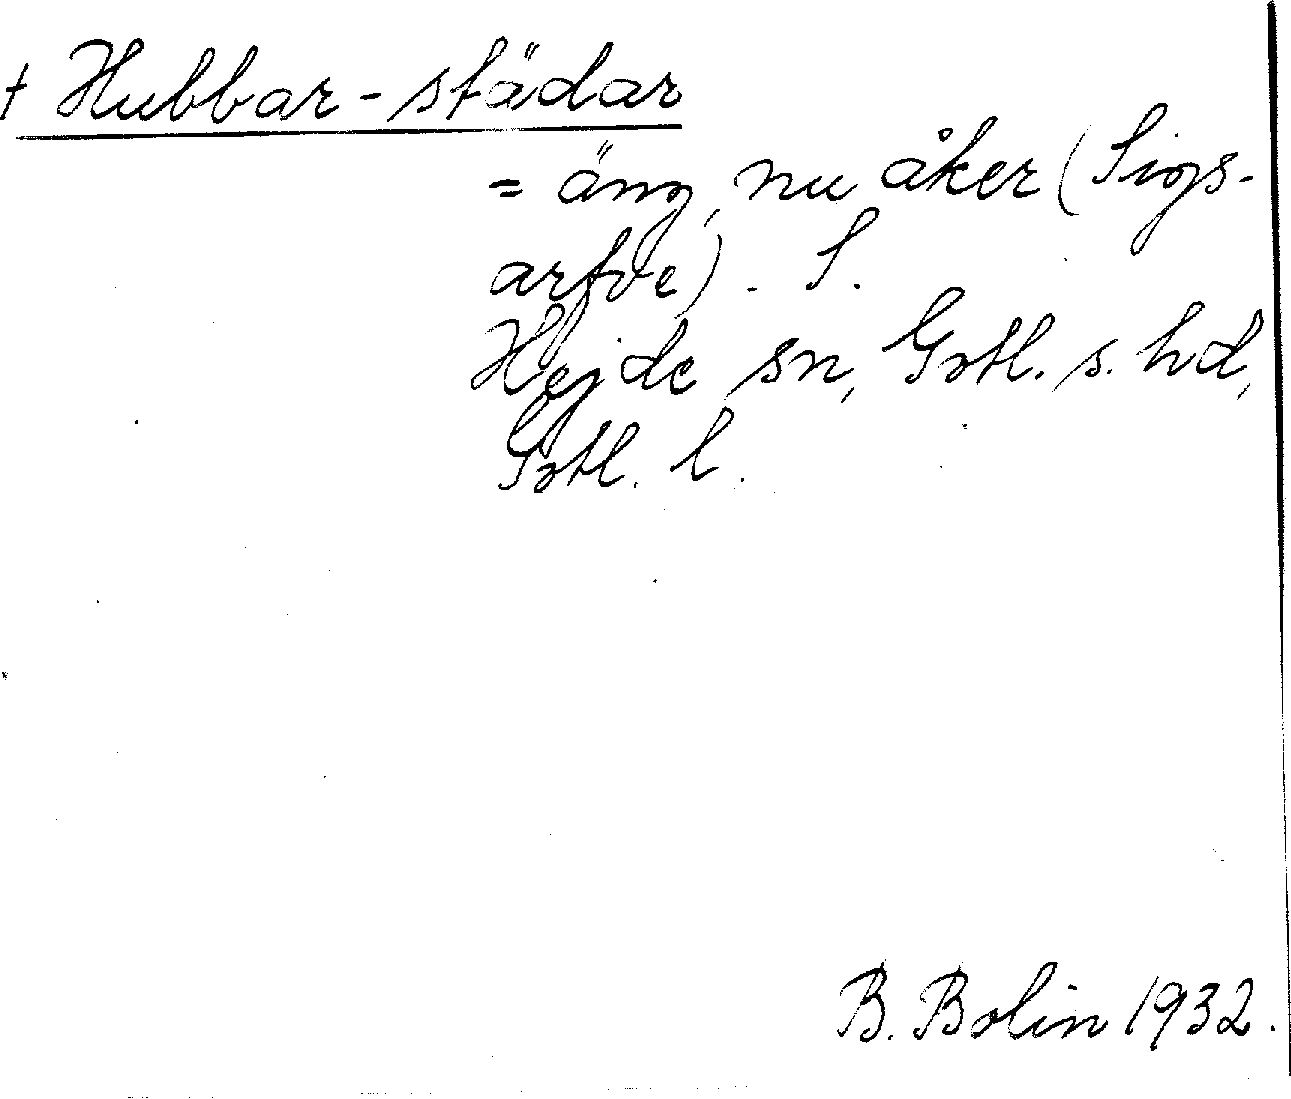 † Hubbar-städar
= äng, nu åker (Sigs-
arfve). S.
Hejde sn, Gotl. s. hd,
Gotl. l.
B. Bolin 1932.